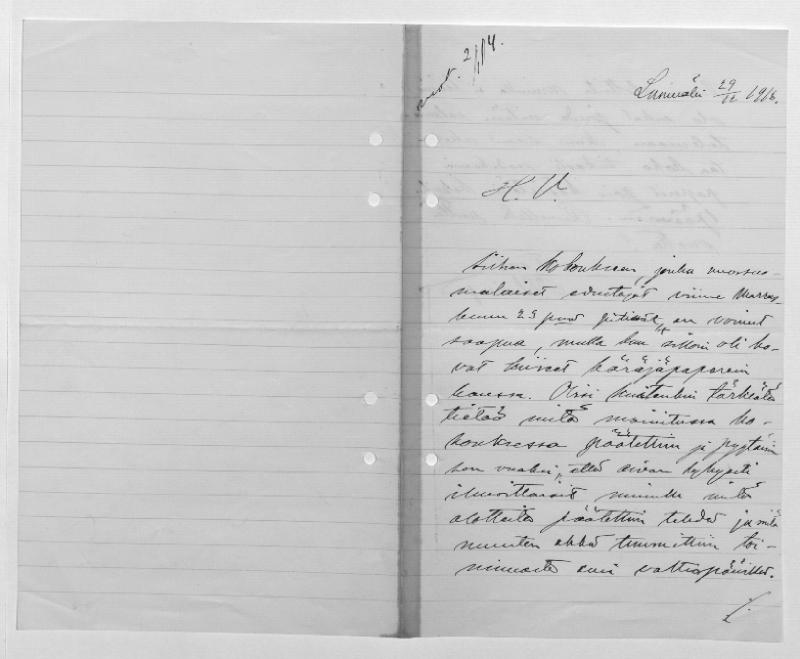 2/1 14.
29/12 1913.
H. V.
Siihen kokoukseen, jonka nuorsuo-
malaiset edustajat viime Marras-
kuun 23 p:nä pitivät, en voinut
saapua, mulla kun silloin oli ko-
vat kiireet käräjäpaperein
kanssa. Olisi kuitenkin tärkeätä
tietää mitä mainitussa ko-
kouksessa päätettiin ja pyytäisin
sen vuoksi, että aivan lyhyesti
ilmoittaisit minulle mitä
alotteita päätettiin tehdä ja mi-
ten ehkä tuumittiin toi-
minnasta ensi valtiopäivillä.
./.